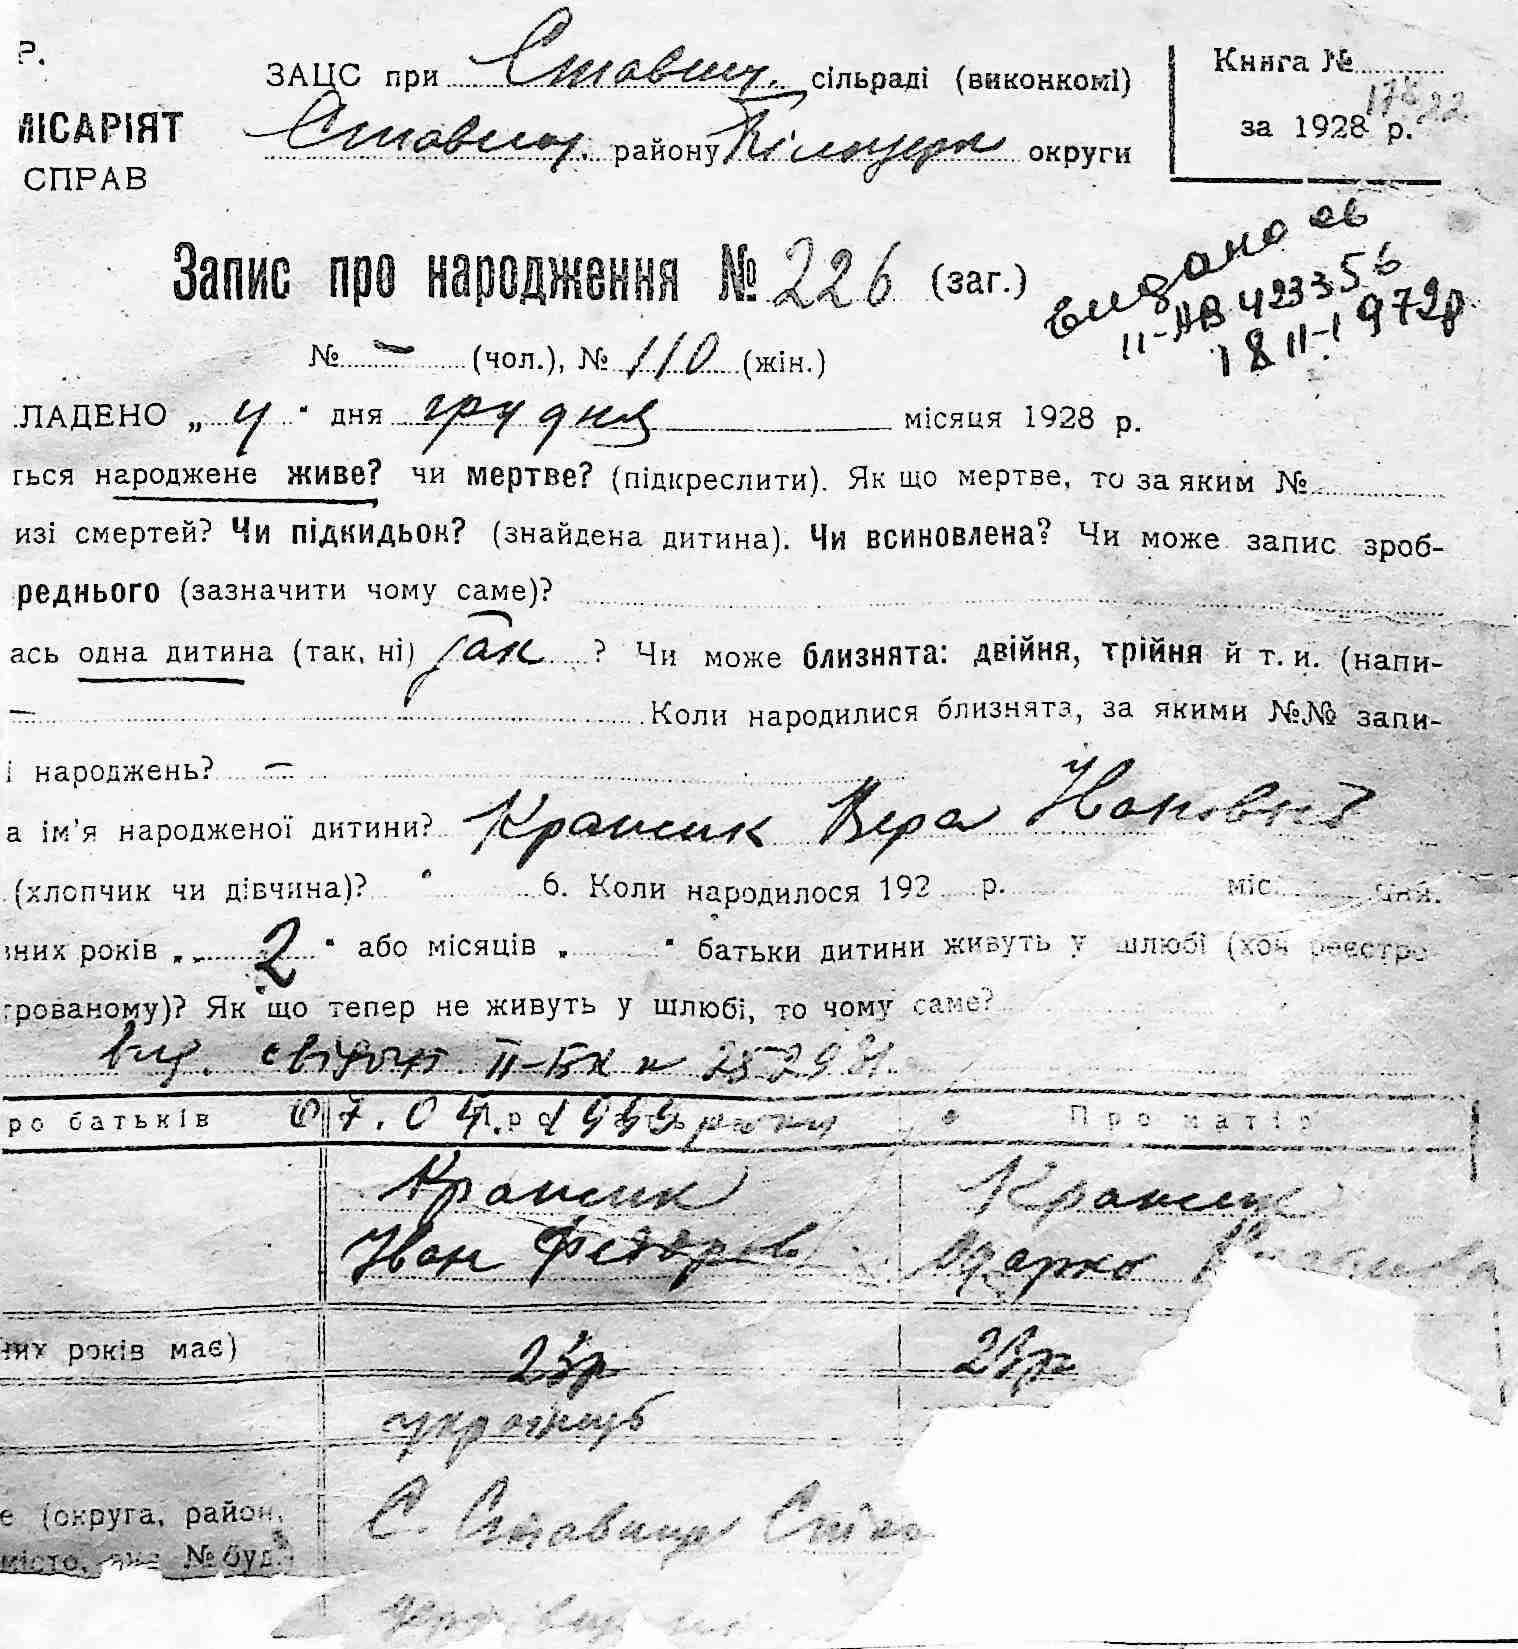 Р.
ЗАЦС при Ставищ. сільраді (виконкомі)
Книга №
178 22
МІСАРІЯТ
Ставищ. району Білоцерк округи
за 1928 р.
СПРАВ
видано св
ІІ-АВ 423356
18 ІІ-1972р
Запис про народження № 226 (заг.)
№ – (чол.), № 110 (жін.)
ЛАДЕНО „ 4 " дня грудня місяця 1928 р.
ться народжене живе? чи мертве? (підкреслити). Як що мертве, то за яким №
изі смертей? Чи підкидьок? (знайдена дитина). Чи всиновлена? Чи може запис зроб-
реднього (зазначити чому саме)?
ась одна дитина (так, ні) так ? Чи може близнята: двійня, трійня й т. и. (напи-
– Коли народилися близнята, за якими №№ запи-
і народжень? –
а ім'я народженої дитини? Вера
(хлопчик чи дівчина)? 6. Коли народилося 192 р. міс. дня.
вних років „ 2 " або місяців „ " батьки дитини живуть у шлюбі (хоч реєстро
трованому)? Як що тепер не живуть у шлюбі, то чому саме?
вид. свідоцт. ІІ-БК №
ро батьків 07.04. року Про матір
Іван Федоров
Марко
них років має) 23р 23р
українець
е (округа, район, С. Ставище
місто, № буд.